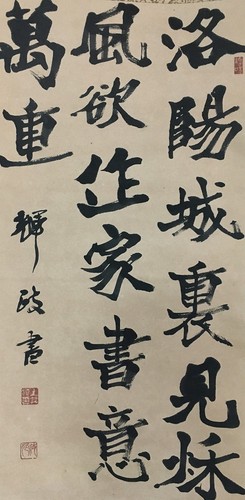 洛陽城裏見秋
風欲作家書意
萬重
輝政書